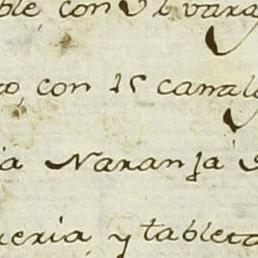 ble con 31 vara
con 15 canale
ia Naranja
ueria y tableta